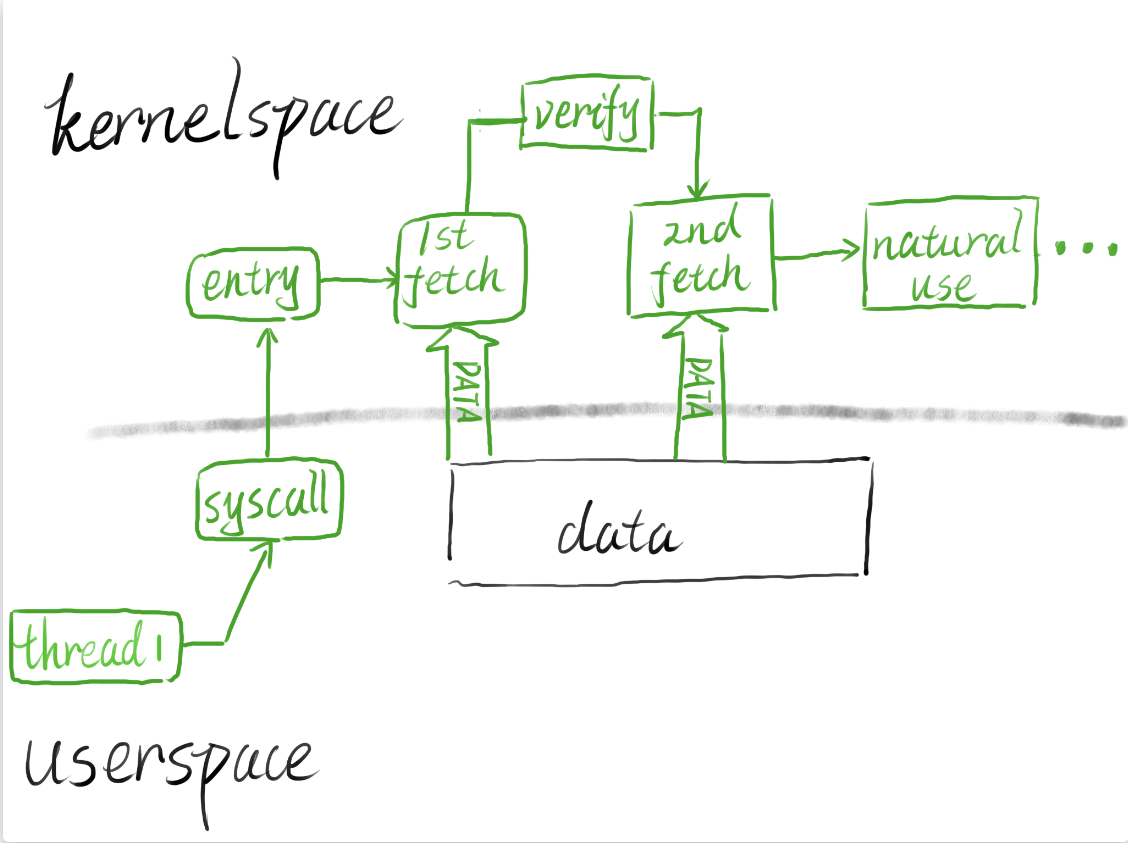 kernelspace
verify
1st
fetch
2nd
fetch
natural
use
...
entry
DATA
DATA
syscall
data
thread 1
userspace